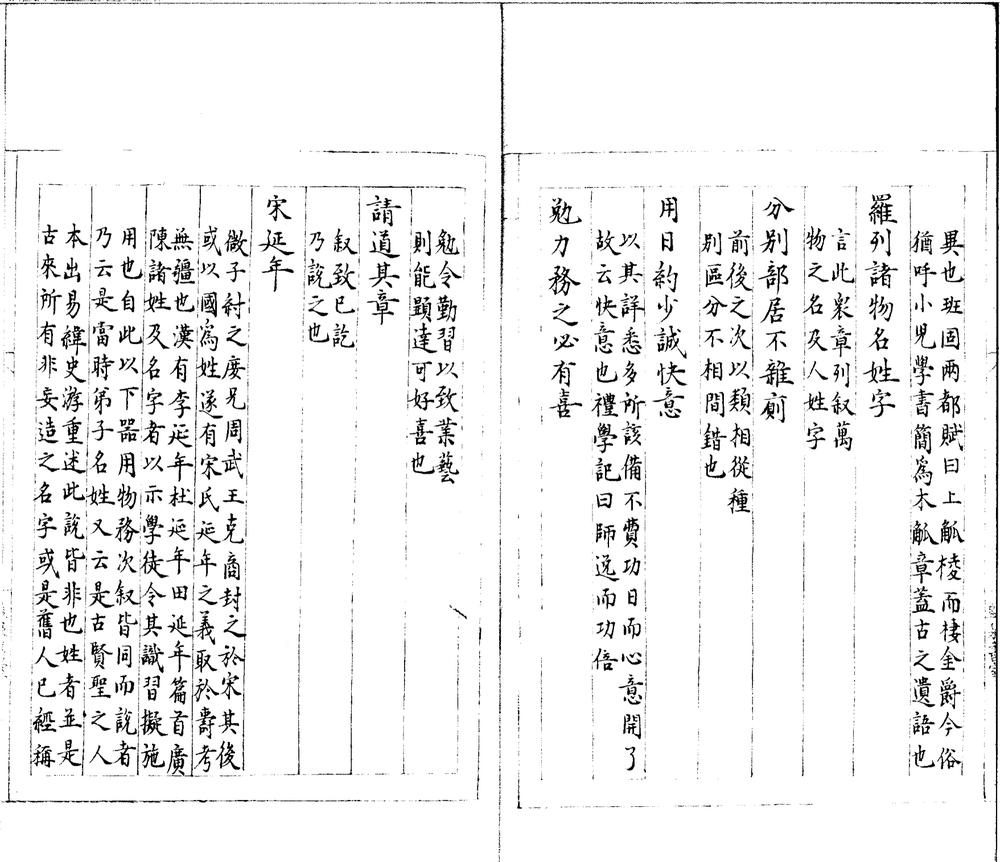 異也班固兩都賦曰上觚棱而棲金爵今俗
猶呼小兒學書簡爲木觚章蓋古之遺語也
羅列諸物名姓字
言此衆章列叙萬
物之名及人姓字
分别部居不雜廁
前後之次以類相從種
别區分不相間錯也
用日約少誠快意
以其詳悉多所該備不費功日而心意開了
故云快意也禮學記曰師逸而功倍
勉力務之必有喜
勉令勤習以致業藝
則能顯達可好喜也
請道其章
叙致已訖
乃說之也
宋延年
微子紂之庶兄周武王克商封之於宋其後
或以國爲姓遂有宋氏延年之義取於壽考
無疆也漢有李延年杜延年田延年篇首廣
陳諸姓及名字者以示學徒令其識習擬施
用也自此以下器用物務次叙皆同而說者
乃云是當時弟子名姓又云是古賢聖之人
本出易緯史游重述此說皆非也姓者並是
古來所有非妄造之名字或是舊人已經稱